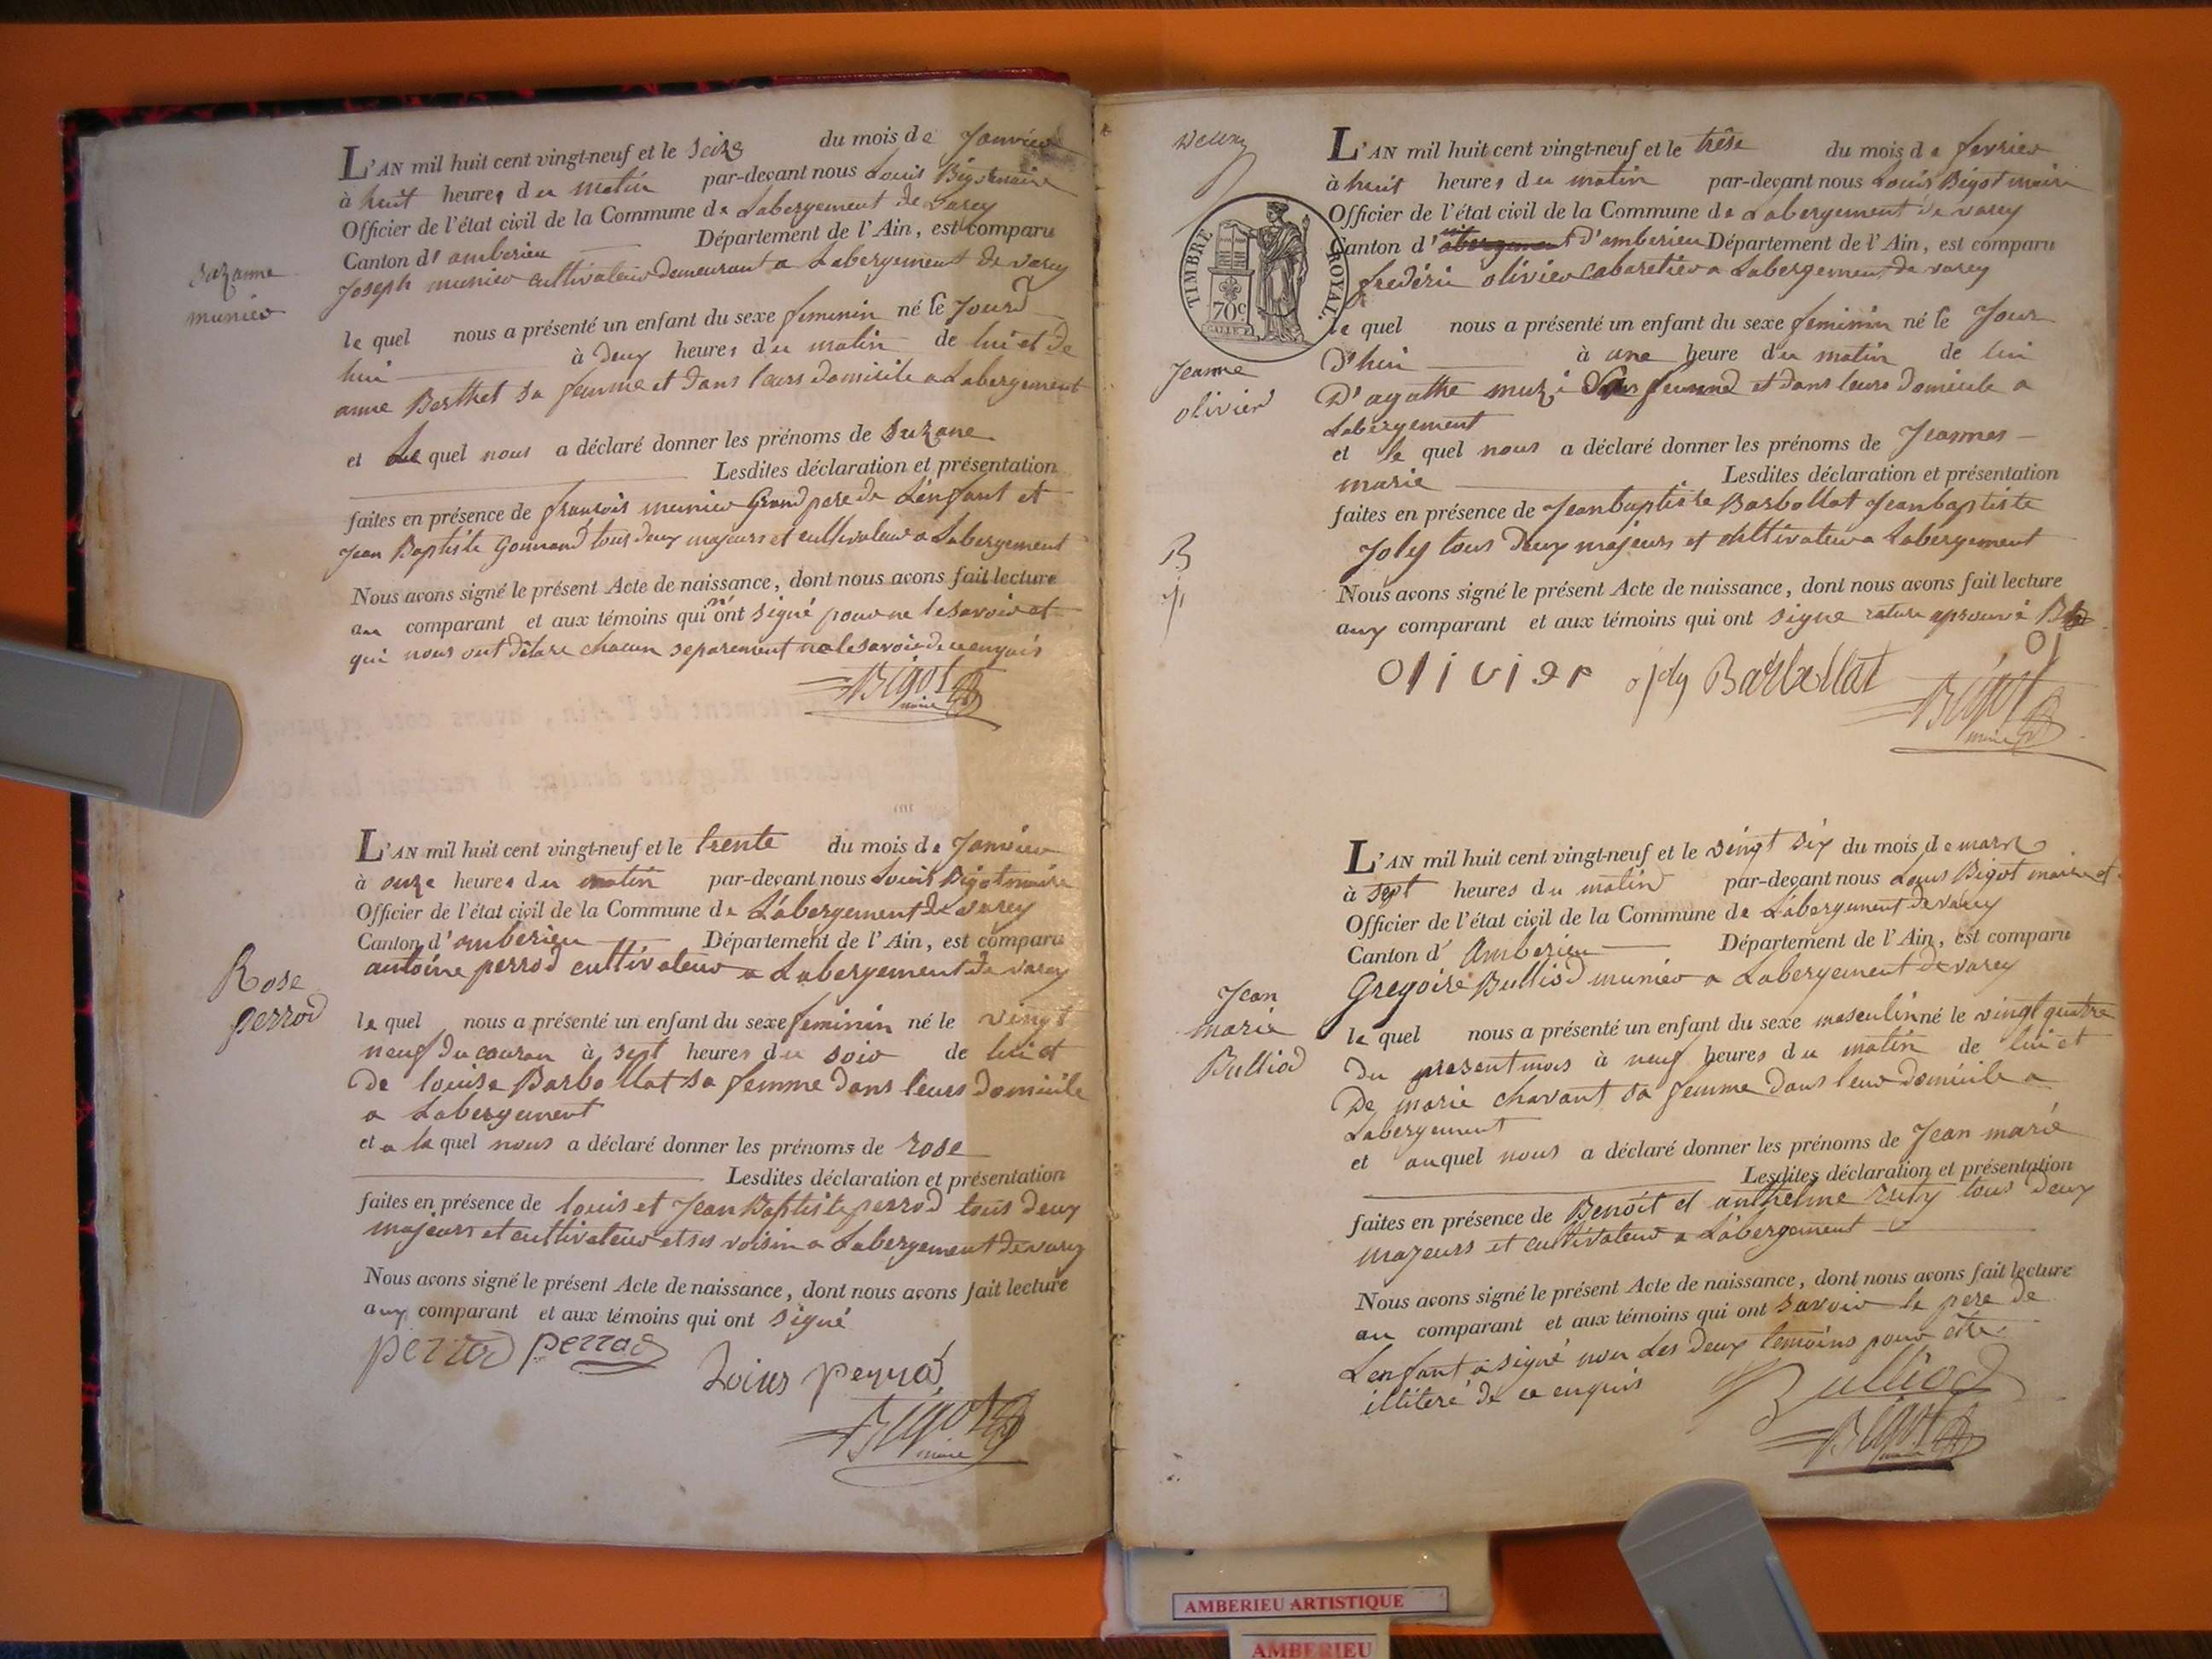 Suzanne
munier
L'AN mil huit cent vingt-neuf et le Seize du mois de Janvier
à huit heures du matin par-devant nous Louis Bigot maire
Officier de l'état civil de la Commune de Labergement de varey
Canton d'amberieu Département de l'Ain, est comparu
Joseph munier cultivateur demeurant a Labergement de varey
le quel nous a présenté un enfant du sexe feminin né le Jourd
hui à deux heures du matin de lui et de
anne Berthet sa femme et dans leurs domicile a Labergement
et quel nous a déclaré donner les prénoms de Suzane
Lesdites déclaration et présentation
faites en présence de françois munier Grand pere de Lenfant et
Jean Baptiste Gonnand tous deux majeurs et cultivateur a Labergement
Nous avons signé le présent Acte de naissance, dont nous avons fait lecture
au comparant et aux témoins qui n'ont signé pour ne le savoir et
qui nous ont déclare chacun separement ne le savoir de ce enquis
Bigot
maire
Rose
perrod
L'AN mil huit cent vingt-neuf et le trente du mois de Janvier
à onze heures du matin par-devant nous Louis Bigot maire
Officier de l'état civil de la Commune de Labergement de varey
Canton d'amberieu Département de l'Ain, est comparu
antoine perrod cultivateur a Labergement de varey
le quel nous a présenté un enfant du sexe feminin né le vingt
neuf du couran à sept heures du soir de lui et
de louise Barbollat sa femme dans leurs domicile
a Labergement
et a la quel nous a déclaré donner les prénoms de rose
Lesdites déclaration et présentation
faites en présence de louis et Jean Baptiste perrod tous deux
majeurs et cultivateur et ses voisin a Labergement de varey
Nous avons signé le présent Acte de naissance, dont nous avons fait lecture
aux comparant et aux témoins qui ont signé
perrod perrod
Loius perrod
Bigot
maire
TIMBRE ROYAL.
70c
Jeanne
olivier
B
L'AN mil huit cent vingt-neuf et le trêse du mois de fevrier
à huit heures du matin par-devant nous Louis Bigot maire
Officier de l'état civil de la Commune de Labergement de varey
Canton d'abergement d'amberieu Département de l'Ain, est comparu
frederic olivier cabaretier a Labergement de varey
le quel nous a présenté un enfant du sexe feminin né le Jour
D'hui à une heure du matin de lui
D'agathe femme et dans leurs domicile a
Labergement
et le quel nous a déclaré donner les prénoms de Jeannes
marie Lesdites déclaration et présentation
faites en présence de Jeanbaptiste Barbollat Jeanbaptiste
Joly tous deux majeurs et cultivateur a Labergement
Nous avons signé le présent Acte de naissance, dont nous avons fait lecture
aux comparant et aux témoins qui ont signe rature aprouvé B
OJ
olivier joly Barbollat
Bigot
maire
Jean
marie
Bulliod
L'AN mil huit cent vingt-neuf et le vingt six du mois de mars
à sept heures du matin par-devant nous Louis Bigot maire et
Officier de l'état civil de la Commune de Labergement de varey
Canton d'Amberieu Département de l'Ain, est comparu
Gregoire Bulliod munier a Labergement de varey
le quel nous a présenté un enfant du sexe masculin né le vingt quatre
du present mois à neuf heures du matin de lui et
De marie chavant sa femme dans leur domicile a
Labergement
et auquel nous a déclaré donner les prénoms de Jean marie
Lesdites déclaration et présentation
faites en présence de Benoît et anthelme tous deux
majeurs et cultivateur a Labergement
Nous avons signé le présent Acte de naissance, dont nous avons fait lecture
au comparant et aux témoins qui ont savoir le pere de
Lenfant a signé non Les deux temoins pour être
illiteré de ce enquis
Bulliod
Bigot
AMBERIEU ARTISTIQUE
AMBERIEU